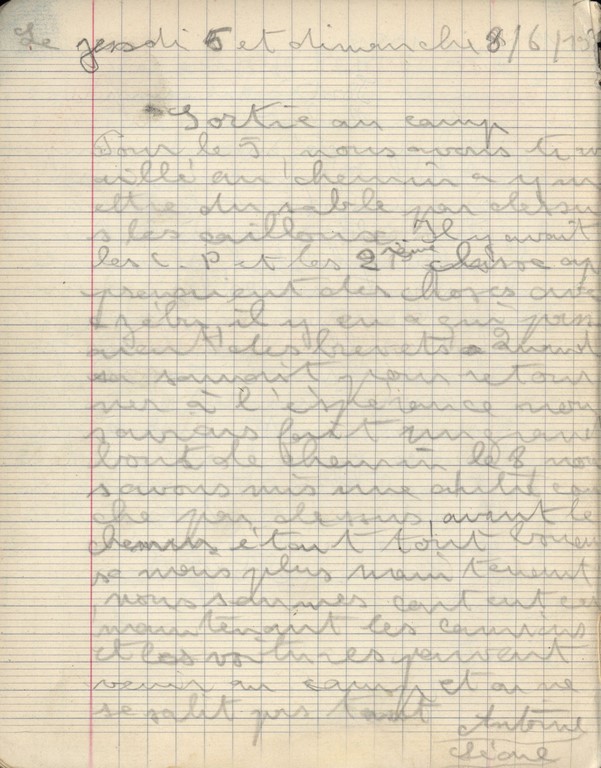 Le jeudi 5 et dimanche 8/6/195
Sortie au camp
Pour le 5 nous avons trav
aillé au chemin a y m
ettre du sable par dessu
s les cailloux. Il y avait
les C. P et les 2ème classe ap
prenaient des choses ave
c zébu, il y en a qui pass
aient des brevets. Quand
sa sonnait pour retour
ner à l'éspérance nous
avions fait un grand
bout de chemin le 8, nou
savons mis une autre cou
che par dessus, avant le
chemin était tout boueu
x nous plus maintenant
, nous sommes content car
maintenant les camions
et les voitures peuvent
venir au camp, et on ne
se salit pas tant
Antoine